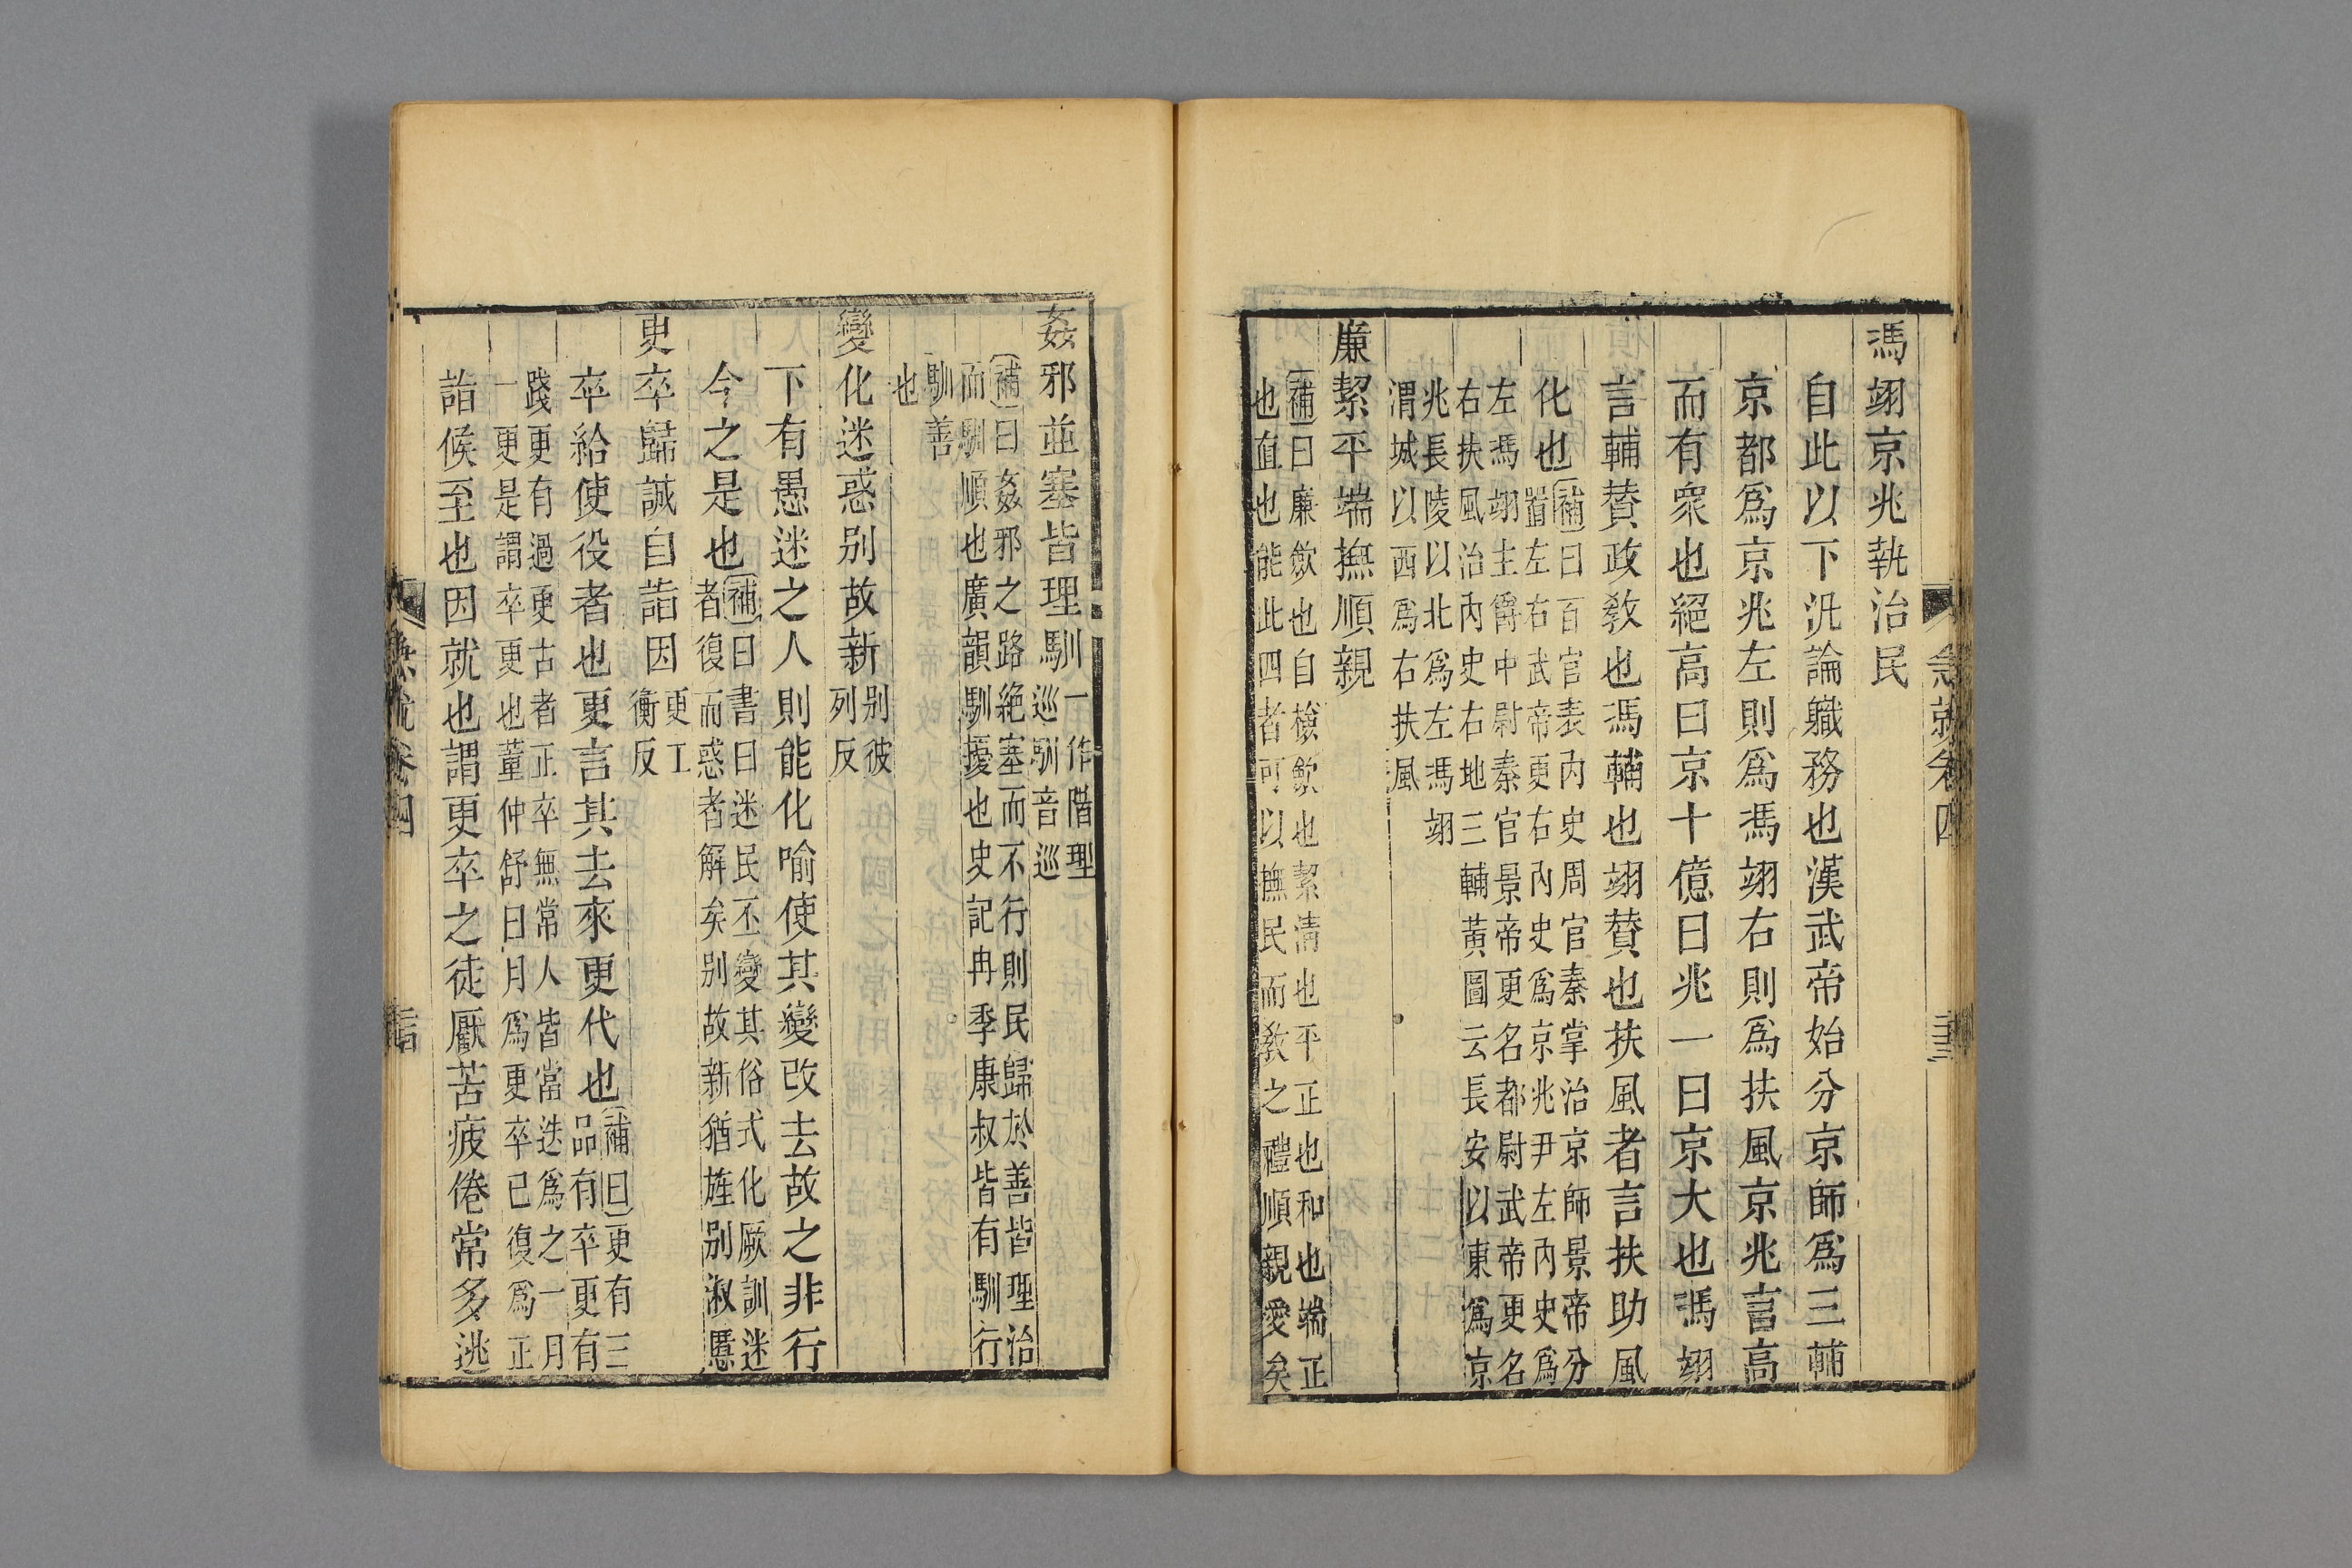 急就卷四
馮翊京兆執治民
自此以下汎論職務也漢武帝始分京師爲三輔
京都爲京兆左則爲馮翊右則爲扶風京兆言高
而有衆也絕高曰京十億曰兆一曰京大也馮翊
言輔賛政敎也馮輔也翊賛也扶風者言扶助風
化也補曰百官表内史周官秦掌治京師景帝分
置左右武帝更右内史爲京兆尹左内史爲
左馮翊主爵中尉秦官景帝更名都尉武帝更名
右扶風治内史右地三輔黃圖云長安以東爲京
兆長陵以北爲左馮翊
渭城以西爲右扶風
廉絜平端撫順親
補曰廉斂也自檢斂也絜清也平正也和也端正
也直也能此四者可以撫民而敎之禮順親愛矣
姦邪並塞皆理馴一作階理
巡馴音巡
補曰姦邪之路絕塞而不行則民歸於善皆理治
而馴順也廣韻馴擾也史記冉季康叔皆有馴行
馴善
也
變化迷惑别故新别彼
列反
下有愚迷之人則能化喻使其變改去故之非行
今之是也補曰書曰迷民丕變其俗式化厥訓迷
者復而惑者解矣别故新猶旌别淑慝
更卒歸誠自詣因更工
衡反
卒給使役者也更言其去來更代也補曰更有三
品有卒更有
踐更有過更古者正卒無常人皆當迭爲之一月
一更是謂卒更也董仲舒曰月爲更卒已復爲正
詣候至也因就也謂更卒之徒厭苦疲倦常多逃
急就卷四